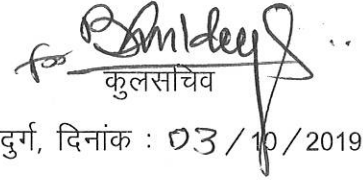 for
कुलसचिव
दुर्ग, दिनांक : 03/10/2019